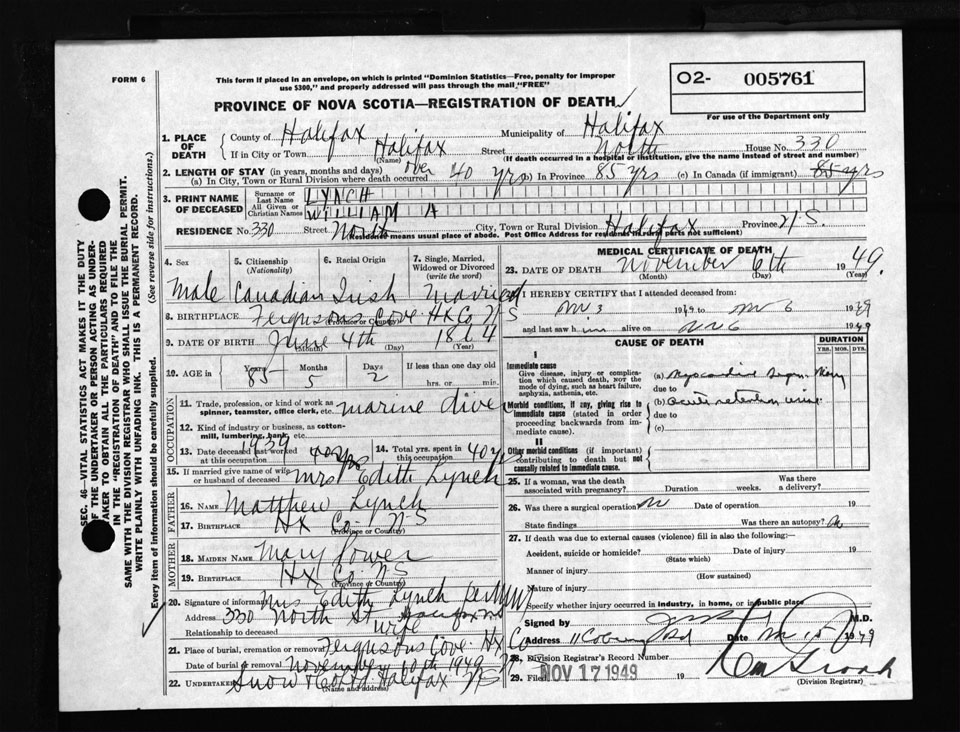 FORM 6
This form if placed in an envelope, on which is printed "Dominion Statistics—Free, penalty for improper
use $300," and properly addressed will pass through the mail "FREE"
O2- 005761
For use of the Department only
PROVINCE OF NOVA SCOTIA—REGISTRATION OF DEATH
1. PLACE OF DEATH County of Halifax Municipality of Halifax
If in City or Town Halifax Street North House No. 330
(Name) (If death occurred in a hospital or institution, give the name instead of street and number)
2. LENGTH OF STAY (in years, months and days)
(a) In City, Town or Rural Division where death occurred over 40 yrs (b) In Province 85 yrs (c) In Canada (if immigrant) 85 yrs
3. PRINT NAME OF DECEASED Surname or Last Name LYNCH
All Given or Christian Names WILLIAM A
RESIDENCE No. 330 Street North City, Town or Rural Division Halifax Province N.S.
Residence means usual place of abode. Post Office Address for residents in rural parts not sufficient)
4. Sex 5. Citizenship (Nationality) 6. Racial Origin 7. Single, Married, Widowed or Divorced (write the word)
Male Canadian Irish Married
8. BIRTHPLACE Fergusons Cove Hx Co N S
(Province or Country)
9. DATE OF BIRTH June 4th 1864
(Month) (Day) (Year)
10. AGE in Years Months Days If less than one day old
85 5 2 hrs. or min.
OCCUPATION
11. Trade, profession, or kind of work as spinner, teamster, office clerk, etc. marine diver
12. Kind of industry or business, as cotton-mill, lumbering, bank, etc.
13. Date deceased last worked at this occupation 1939
14. Total yrs. spent in this occupation 40 yrs
15. If married give name of wife or husband of deceased Mrs Edith Lynch
FATHER
16. Name Matthew Lynch
17. BIRTHPLACE Hx Co. N-S
(Province or Country)
MOTHER
18. MAIDEN NAME Mary Power
19. BIRTHPLACE Hx Co. N S
(Province or Country)
20. Signature of informant Mrs Edith Lynch
Address 330 North St Halifax NS
Relationship to deceased wife
21. Place of burial, cremation or removal Fergusons Cove Hx Co
Date of burial or removal November 10th 1949
22. UNDERTAKER Snow & Co Ltd Halifax N S
(Name and address)
MEDICAL CERTIFICATE OF DEATH
23. DATE OF DEATH November 6th 1949.
(Month) (Day) (Year)
I HEREBY CERTIFY that I attended deceased from:
Nov 3 1949 to Nov 6 1949
and last saw him alive on Nov 6 1949
CAUSE OF DEATH
DURATION
YRS. MOS. DYS.
I
Immediate cause
Give disease, injury or complication which caused death, not the mode of dying, such as heart failure, asphyxia, asthenia, etc.
(a) Myocardial
due to
Morbid conditions, if any, giving rise to immediate cause (stated in order proceeding backwards from immediate cause).
(b) acute retention urine
due to
(c)
II
Other morbid conditions (if important) contributing to death but not causally related to immediate cause.
25. If a woman, was the death associated with pregnancy? Duration weeks. Was there a delivery?
26. Was there a surgical operation Date of operation 19
State findings Was there an autopsy?
27. If death was due to external causes (violence) fill in also the following:—
Accident, suicide or homicide? Date of injury 19
(State which)
Manner of injury
(How sustained)
Nature of injury
Specify whether injury occurred in industry, in home, or in public place
Signed by M.D.
Address 11 Coburg Rd Date Nov 15 1949
28. Division Registrar's Record Number
29. Filed NOV 17 1949 19
(Division Registrar)
SEC. 46—VITAL STATISTICS ACT MAKES IT THE DUTY
OF THE UNDERTAKER OR PERSON ACTING AS UNDER-
TAKER TO OBTAIN ALL THE PARTICULARS REQUIRED
IN THE "REGISTRATION OF DEATH" AND TO FILE THE
SAME WITH THE DIVISION REGISTRAR WHO SHALL ISSUE THE BURIAL PERMIT.
WRITE PLAINLY WITH UNFADING INK. THIS IS A PERMANENT RECORD.
Every item of information should be carefully supplied. (See reverse side for instructions.)